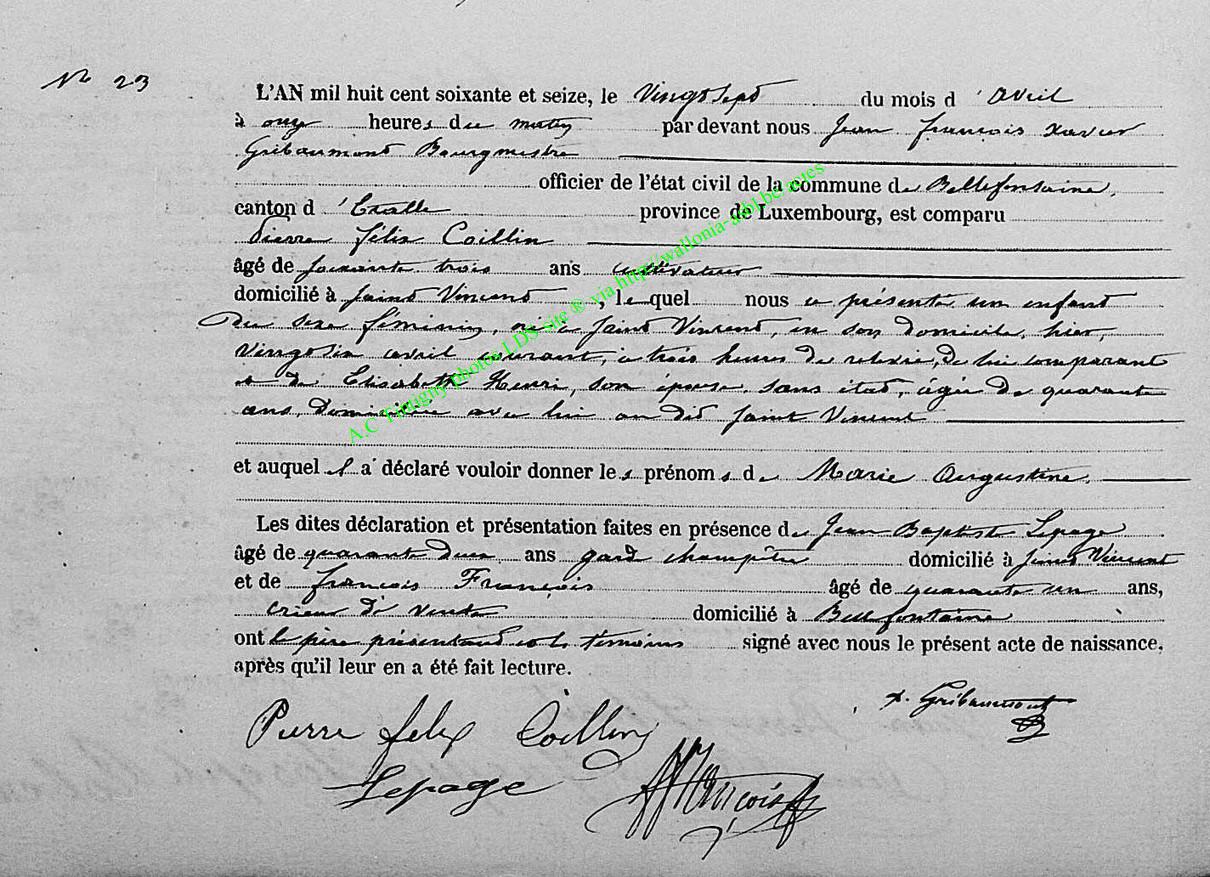 N° 23
L'AN mil huit cent soixante et seize, le Vingt Sept du mois d'Avril
à onze heures du matin par devant nous Jean François Xavier
Gribaumont Bourgmestre
officier de l'état civil de la commune de Bellefontaine,
canton d'Etalle province de Luxembourg, est comparu
Pierre Félix Coillin
âgé de soixante trois ans cultivateur
domicilié à Saint Vincent, lequel nous a présenté un enfant
du sexe féminin, né à Saint Vincent, en son domicile, hier,
vingt six avril courant, à trois heures de relevée, de lui comparant
et de Elisabeth Henri, son épouse, sans état, âgée de quarante
ans, domiciliée avec lui au dit Saint Vincent
et auquel il a déclaré vouloir donner les prénoms de Marie Augustine.
Les dites déclaration et présentation faites en présence de Jean Baptiste Lepage
âgé de quarante deux ans gard champêtre domicilié à Saint Vincent
et de François François âgé de quarante un ans,
crieur de vente domicilié à Bellefontaine
ont le père présentant et les témoins signé avec nous le présent acte de naissance,
après qu'il leur en a été fait lecture.
x. Gribaumont
Pierre félix Coillin
Lepage FFrançois
A.C Tintigny photos LDS site ® via http://wallonia-asbl.be actes